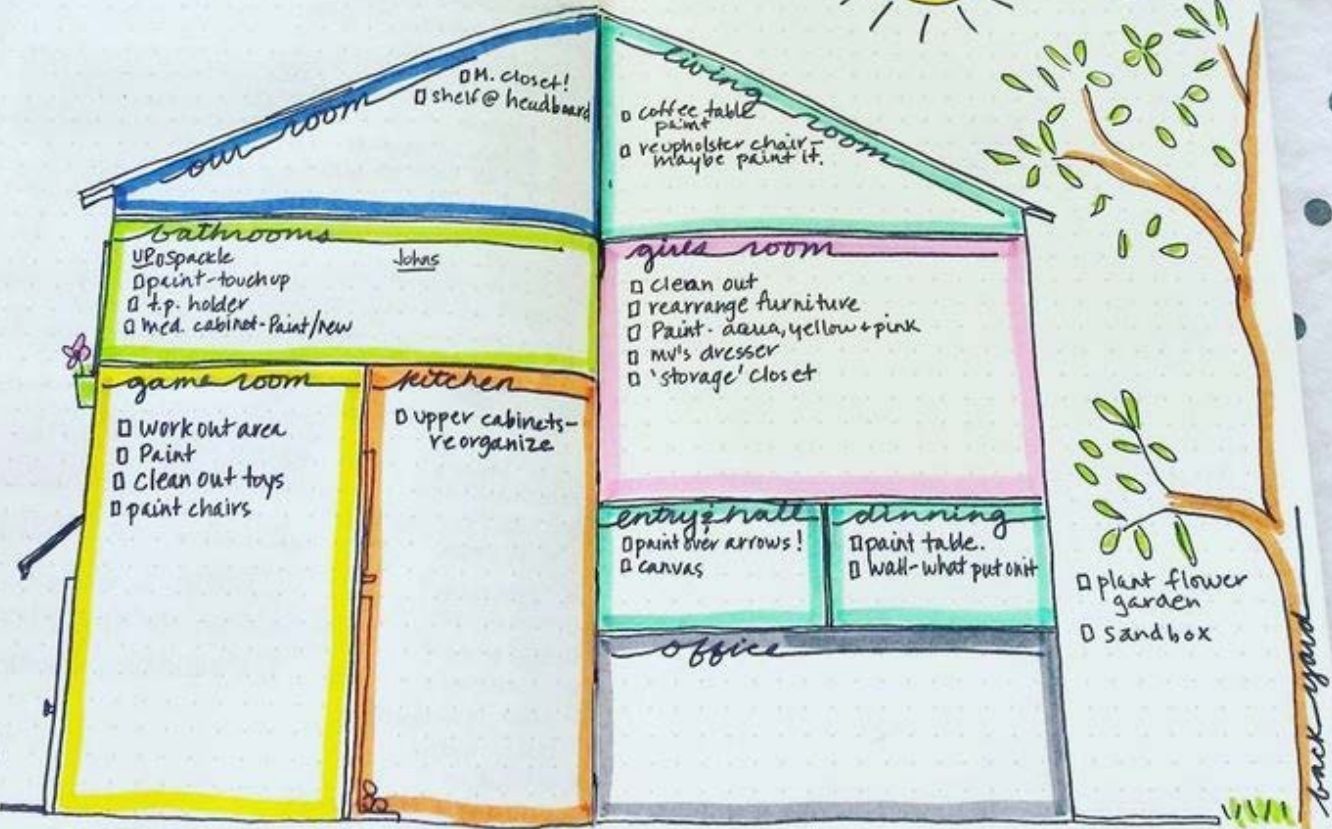 our room
M. closet!
shelf @ headboard
living room
coffee table
paint
reupholster chair-
maybe paint it.
bathrooms
UP spackle
paint-touchup
t.p. holder
med. cabinet-Paint/new
Johns
girls room
clean out
rearrange furniture
Paint- aqua, yellow + pink
MV's dresser
'storage' closet
game room
work out area
Paint
clean out toys
paint chairs
kitchen
upper cabinets-
reorganize
entry & hall
paint over arrows!
canvas
dinning
paint table.
wall-what put on it
office
plant flower
garden
sandbox
back yard